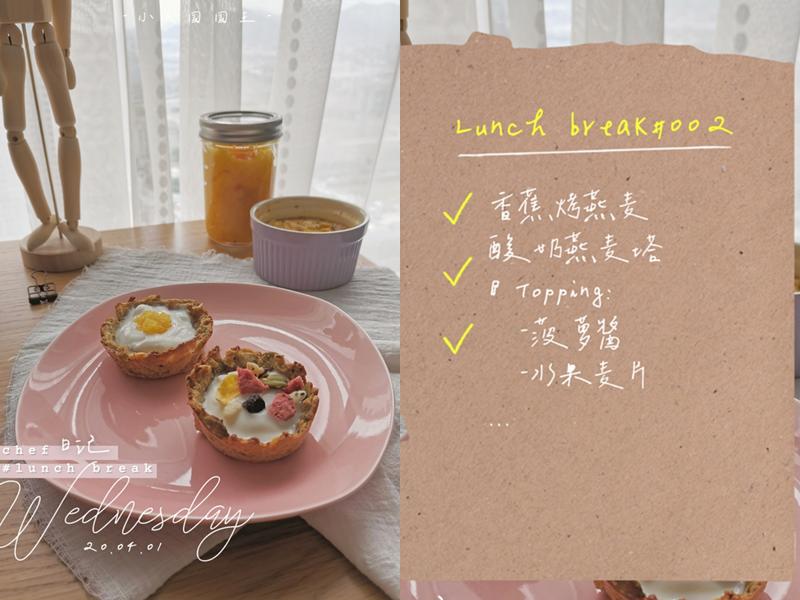 chef 日记
#lunch break
Wednesday
20.04.01
Lunch break#002
香蕉烤燕麦
酸奶燕麦塔
Topping:
-菠萝醬
-水果麦片
...